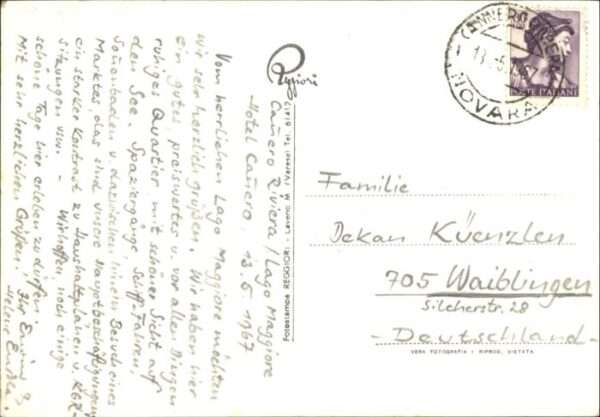 Cañero Riviera / Lago Maggiore
Hotel Cañero. 13.5.1967
Vom herrlichen Lago Maggiore möchten
wir sehr herzlich grüßen. Wir haben hier
ein gutes, preiswertes u. vor allen Dingen
ruhiges Quartier mit schöner Sicht auf
den See. Spaziergänge, Schiff-Fahren,
Sonnenbaden u. dazwischen hinein Besuch eines
Marktes, das sind unsere Hauptbeschäftigungen
ein starker Kontrast zu Haushaltsplänen u. KGR-
Sitzungen usw. - Wir hoffen noch einige
schöne Tage hier erleben zu dürfen.
Mit sehr herzlichen Grüßen! Ihr Erwin u.
Helene
Reggiori
Fotoedizione REGGIORI - Laveno M. (Varese) Tel.
CANNERO RIVIERA
13.5.
NOVARA
POSTE ITALIANE
Familie
Dekan Küenzlen
705 Waiblingen
Silcherstr. 28
- Deutschland -
VERA FOTOGRAFIA - RIPROD. VIETATA